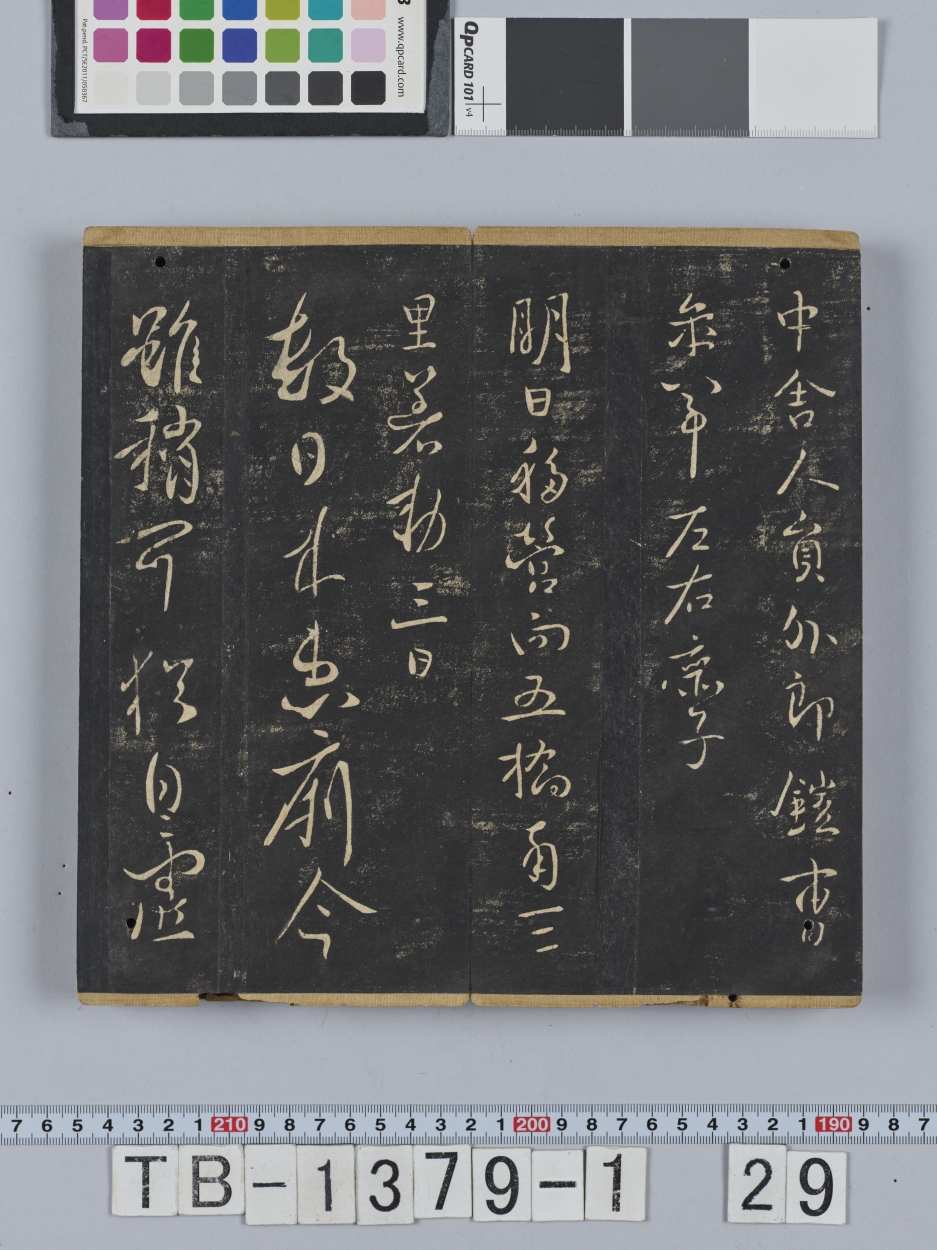 Pat.pend. PCT/SE2011/050367
www.qpcard.com
QPCARD 101 v4
中舍人員外郎鎧曹
叅軍左右子
明日移營向五橋南三
里若勑三日
數日來患痢今
雖稍可猶自虛
7 6 5 4 3 2 1 210 9 8 7 6 5 4 3 2 1 200 9 8 7 6 5 4 3 2 1 190 9 8 7
TB-1379-1 29